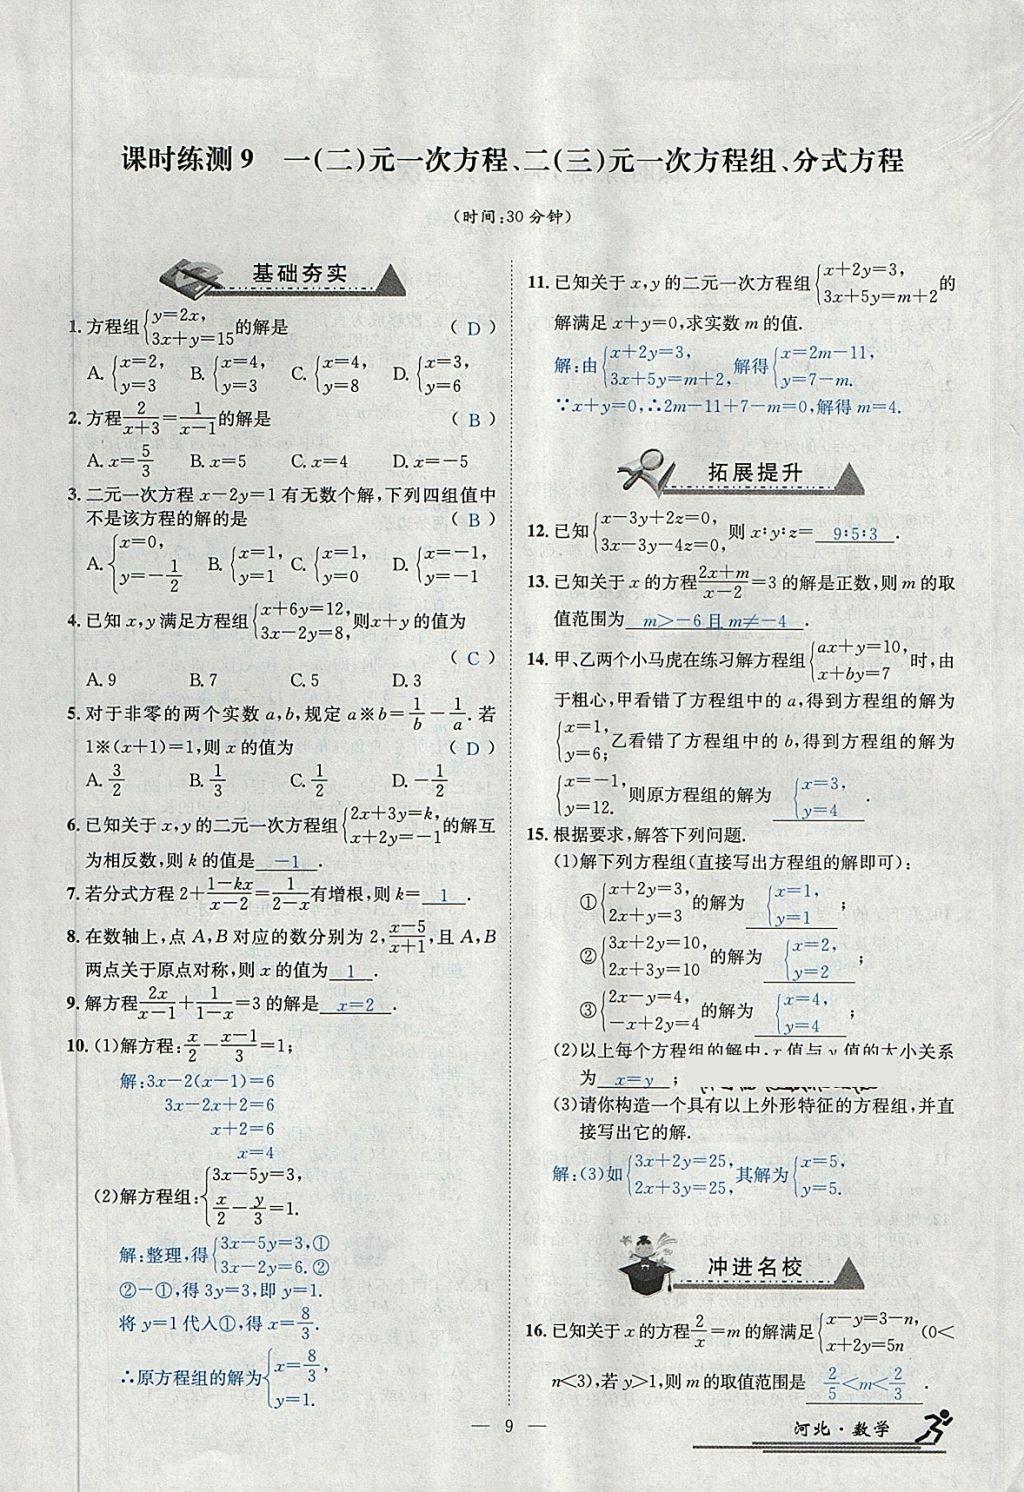 课时练测9 一(二)元一次方程、二(三)元一次方程组、分式方程
(时间:30分钟)
基础夯实
1.方程组{y=2x, 3x+y=15 的解是 ( D )
A.{x=2, y=3 B.{x=4, y=3 C.{x=4, y=8 D.{x=3, y=6
2.方程2/(x+3)=1/(x-1)的解是 ( B )
A.x=5/3 B.x=5 C.x=4 D.x=-5
3.二元一次方程x-2y=1有无数个解,下列四组值中
不是该方程的解的是 ( B )
A.{x=0, y=-1/2 B.{x=1, y=1 C.{x=1, y=0 D.{x=-1, y=-1
4.已知x,y满足方程组{x+6y=12, 3x-2y=8,则x+y的值为
( C )
A.9 B.7 C.5 D.3
5.对于非零的两个实数a,b,规定a※b=1/b-1/a.若
1※(x+1)=1,则x的值为 ( D )
A.3/2 B.1/3 C.1/2 D.-1/2
6.已知关于x,y的二元一次方程组{2x+3y=k, x+2y=-1 的解互
为相反数,则k的值是 -1 .
7.若分式方程2+(1-kx)/(x-2)=1/(2-x)有增根,则k= 1 .
8.在数轴上,点A,B对应的数分别为2,(x-5)/(x+1),且A,B
两点关于原点对称,则x的值为 1 .
9.解方程2x/(x-1)+1/(1-x)=3的解是 x=2 .
10.(1)解方程:x/2-(x-1)/3=1;
解:3x-2(x-1)=6
3x-2x+2=6
x+2=6
x=4
(2)解方程组:{3x-5y=3, x/2-y/3=1.
解:整理,得{3x-5y=3,① 3x-2y=6.②
②-①,得3y=3,即y=1.
将y=1代入①,得x=8/3.
∴原方程组的解为{x=8/3, y=1.
11.已知关于x,y的二元一次方程组{x+2y=3, 3x+5y=m+2 的
解满足x+y=0,求实数m的值.
解:由{x+2y=3, 3x+5y=m+2, 解得{x=2m-11, y=7-m.
∵x+y=0,∴2m-11+7-m=0,解得m=4.
拓展提升
12.已知{x-3y+2z=0, 3x-3y-4z=0,则x∶y∶z= 9∶5∶3 .
13.已知关于x的方程(2x+m)/(x-2)=3的解是正数,则m的取
值范围为 m>-6且m≠-4 .
14.甲、乙两个小马虎在练习解方程组{ax+y=10, x+by=7 时,由
于粗心,甲看错了方程组中的a,得到方程组的解为
{x=1, y=6;乙看错了方程组中的b,得到方程组的解为
{x=-1, y=12. 则原方程组的解为 {x=3, y=4 .
15.根据要求,解答下列问题.
(1)解下列方程组(直接写出方程组的解即可):
①{x+2y=3, 2x+y=3 的解为 {x=1, y=1 ;
②{3x+2y=10, 2x+3y=10 的解为 {x=2, y=2 ;
③{2x-y=4, -x+2y=4 的解为 {x=4, y=4 ;
(2)以上每个方程组的解中,x值与y值的大小关系
为 x=y ;
(3)请你构造一个具有以上外形特征的方程组,并直
接写出它的解.
解:(3)如{3x+2y=25, 2x+3y=25,其解为{x=5, y=5.
冲进名校
16.已知关于x的方程2/x=m的解满足{x-y=3-n, x+2y=5n (0<
n<3),若y>1,则m的取值范围是 2/5<m<2/3 .
— 9 —
河北·数学